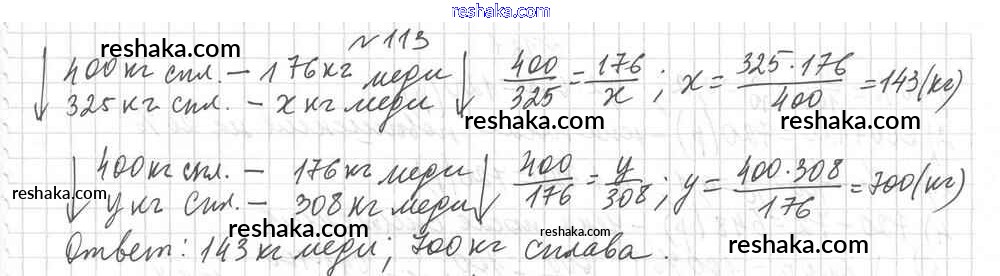 reshaka.com
№113
reshaka.com
400 кг спл. – 176 кг меди
325 кг спл. – x кг меди
400/325 = 176/x ; x = 325·176/400 = 143 (кг)
reshaka.com
reshaka.com
reshaka.com
400 кг спл. – 176 кг меди
y кг спл. – 308 кг меди
400/176 = y/308 ; y = 400·308/176 = 700 (кг)
reshaka.com
reshaka.com
reshaka.com
Ответ: 143 кг меди; 700 кг сплава.
reshaka.com